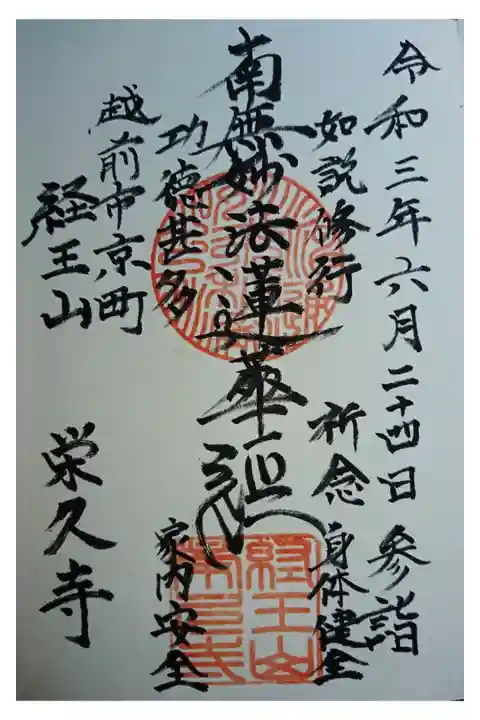 令和三年六月二十四日 参詣
如説修行 祈念 身体健全
南無妙法蓮華経
功徳甚多 家内安全
越前市京町
経王山 栄久寺
経王山